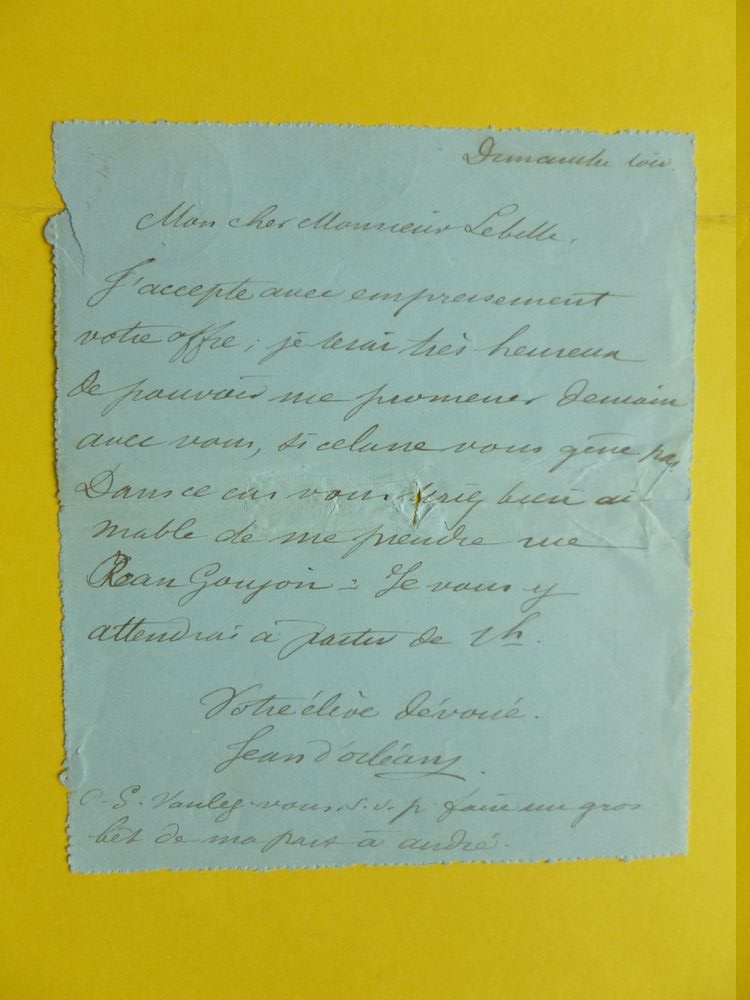 Dimanche soir.
Mon cher Monsieur Lebelle,
J'accepte avec empressement
votre offre ; je serai très heureux
de pouvoir me promener demain
avec vous, si cela ne vous gêne pas
Dans ce cas vous seriez bien ai-
mable de me prendre rue
Jean Goujon = Je vous y
attendrai à partir de 2h.
Votre élève dévoué.
Jean d'orléans
P. S. Voulez-vous s. v. p. faire un gros
bêt de ma part à andré.